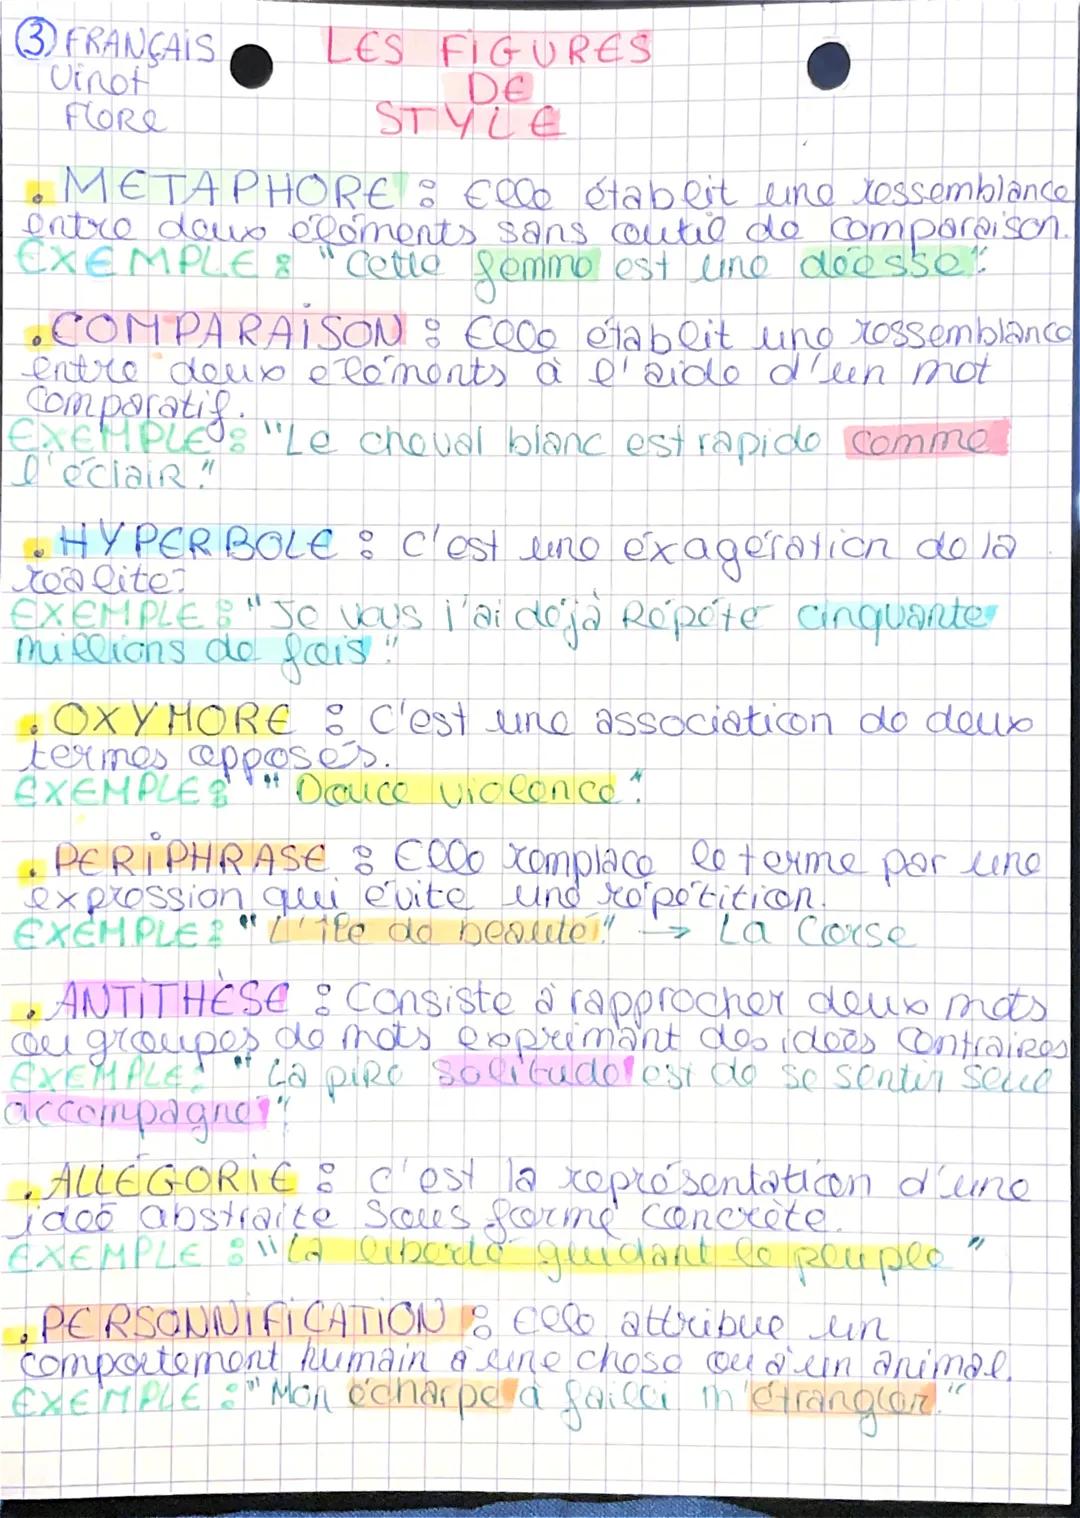 ③ FRANÇAIS
Vinot
Flore
LES FIGURES
DE
STYLE
. METAPHORE : Elle établit une ressemblance
entre deux éléments sans outil de comparaison.
EXEMPLE : "Cette femme est une déesse".
. COMPARAISON : Elle établit une ressemblance
entre deux éléments à l'aide d'un mot
comparatif.
EXEMPLE : "Le cheval blanc est rapide comme
l'éclair."
. HYPERBOLE : C'est une exagération de la
réalité.
EXEMPLE : "Je vous l'ai déjà Répété cinquante
millions de fois".
. OXYMORE : C'est une association de deux
termes opposés.
EXEMPLE : "Douce violence".
. PERIPHRASE : Elle remplace le terme par une
expression qui évite une répétition.
EXEMPLE : "L'île de beauté". → La Corse
. ANTITHÈSE : Consiste à rapprocher deux mots
ou groupes de mots exprimant des idées contraires
EXEMPLE : "La pire solitude est de se sentir seul
accompagné".
. ALLÉGORIE : C'est la représentation d'une
idée abstraite sous forme concrète.
EXEMPLE : "La liberté guidant le peuple"
. PERSONNIFICATION : Elle attribue un
comportement humain à une chose ou à un animal.
EXEMPLE : "Mon écharpe a failli m'étrangler."